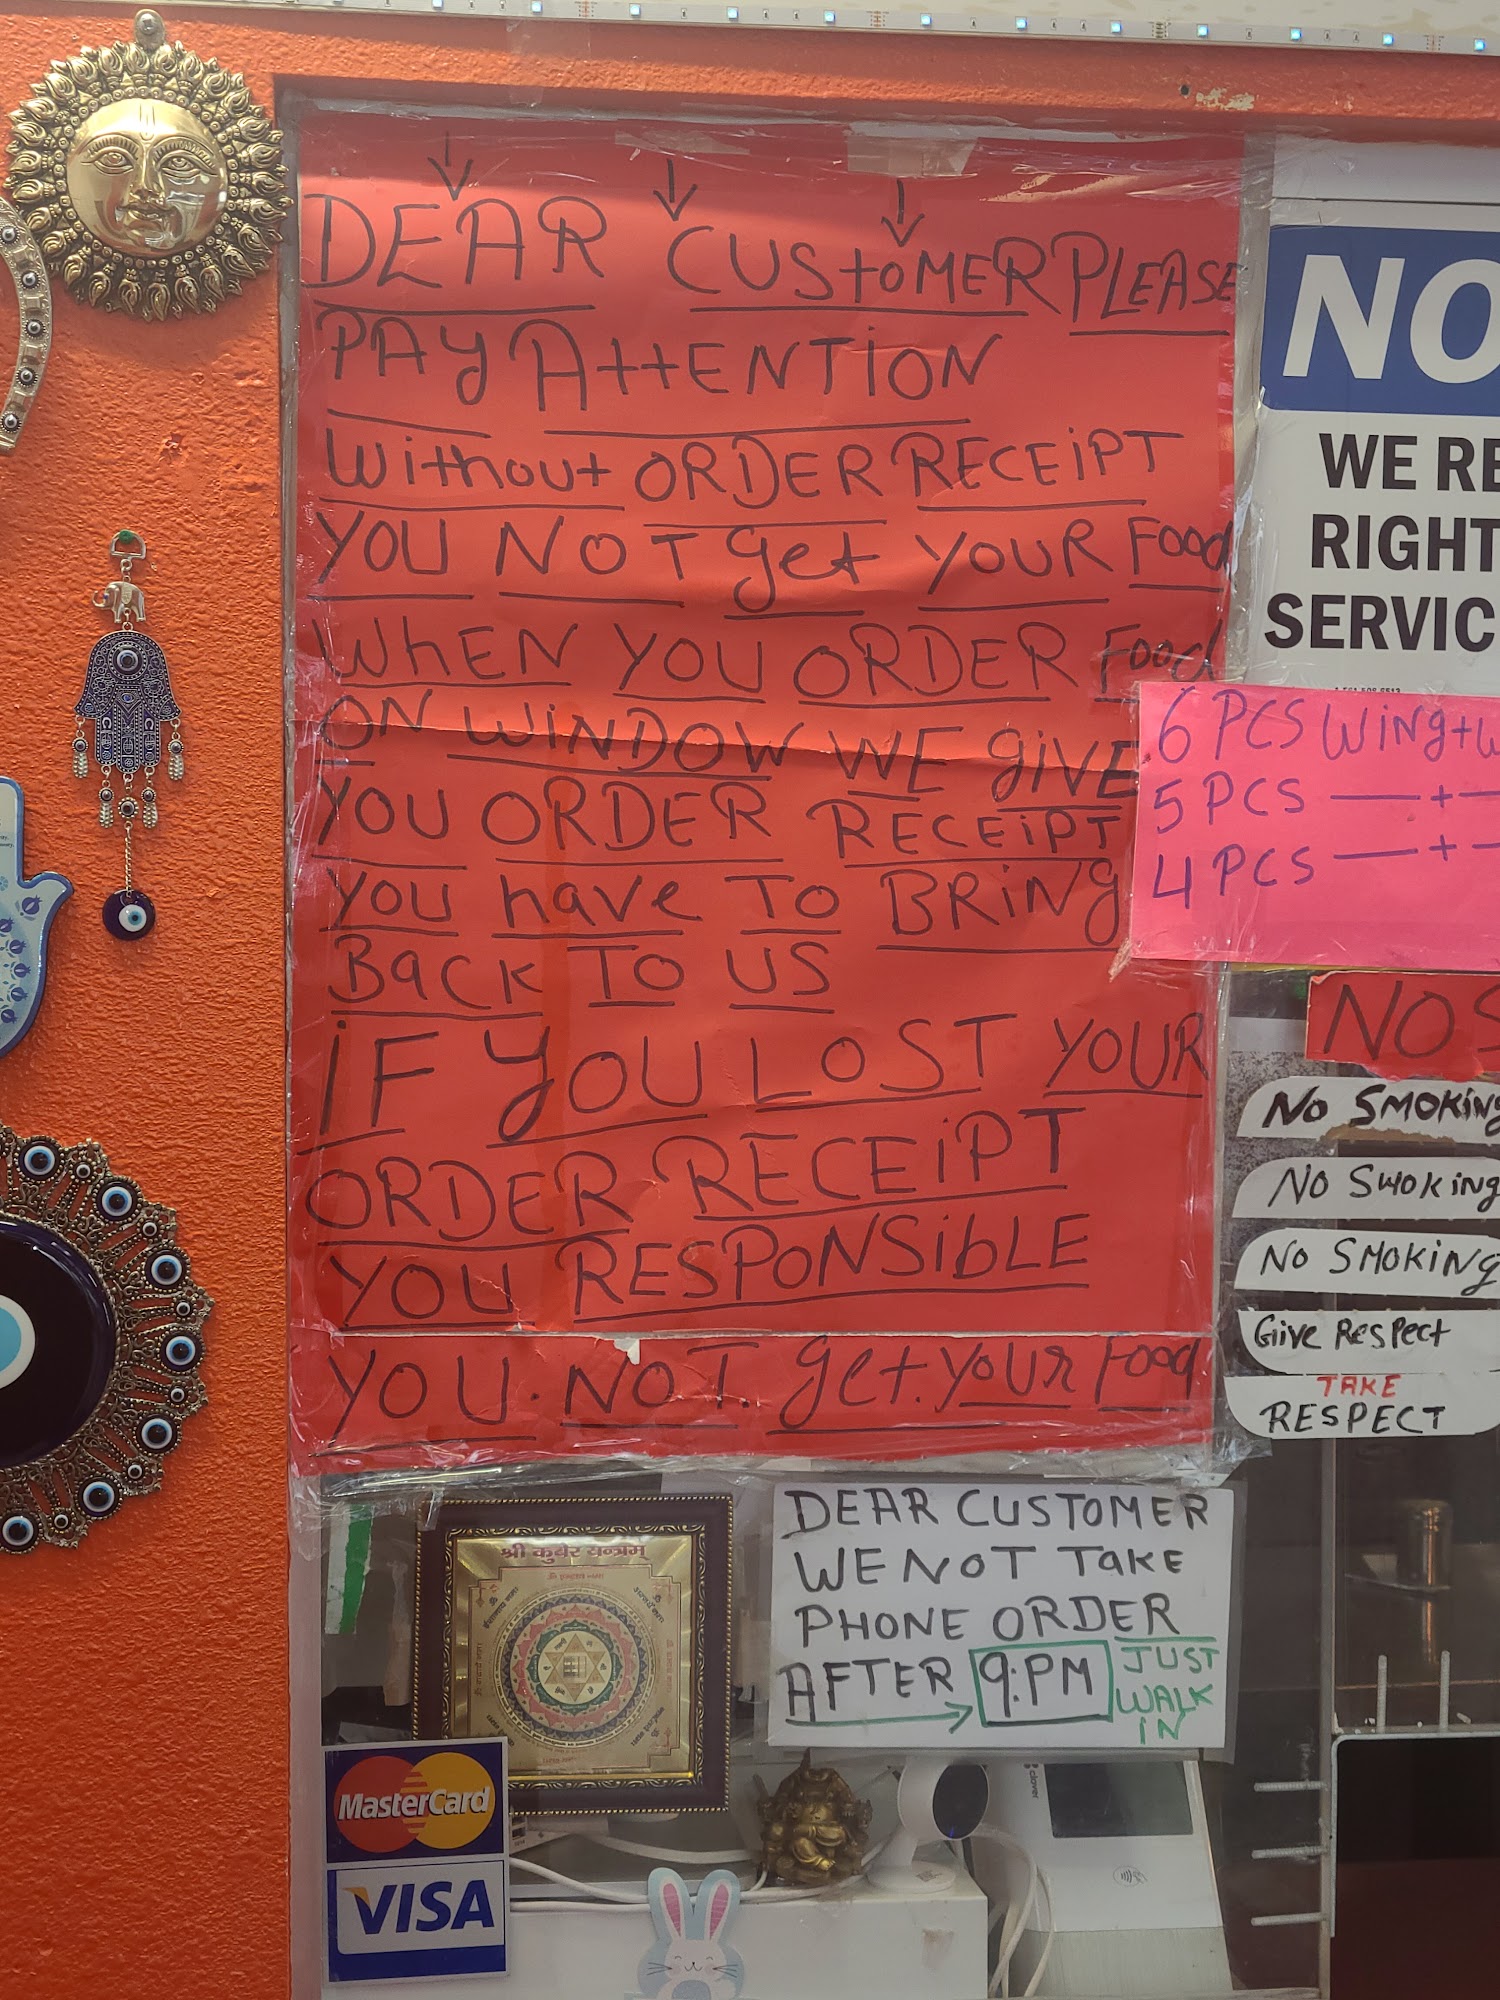 DEAR CUStoMER PLEASE
PAY AttENTiON
Without ORDER RECEiPT
YOU NOT get YOUR Food
WhEN YOU ORDER Food
ON WiNDOW WE giVE
YOU ORDER RECEiPT
YOU have TO BRiNg
BacK TO US
iF YOU LOST YOUR
ORDER RECEiPT
YOU RESPONSibLE
YOU. NOT. get. YOUR Food
NO
WE RE
RIGHT
SERVIC
6 PCS WiNg+W
5 PCS — + —
4 PCS — + —
NO S
No SMOKiNg
No SMOKiNg
No SMOKiNg
Give RESPEct
TAKE
RESPECT
DEAR CUSTOMER
WE NOT TAKE
PHONE ORDER
AFTER 9:PM JUST
WALK
IN
श्री कुबेर यन्त्रम्
MasterCard
VISA
clover